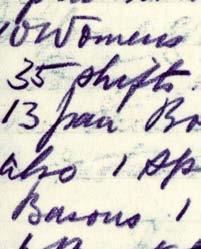 Womens
35 shifts.
13 pair Bo
also 1 Sp
Basons 1